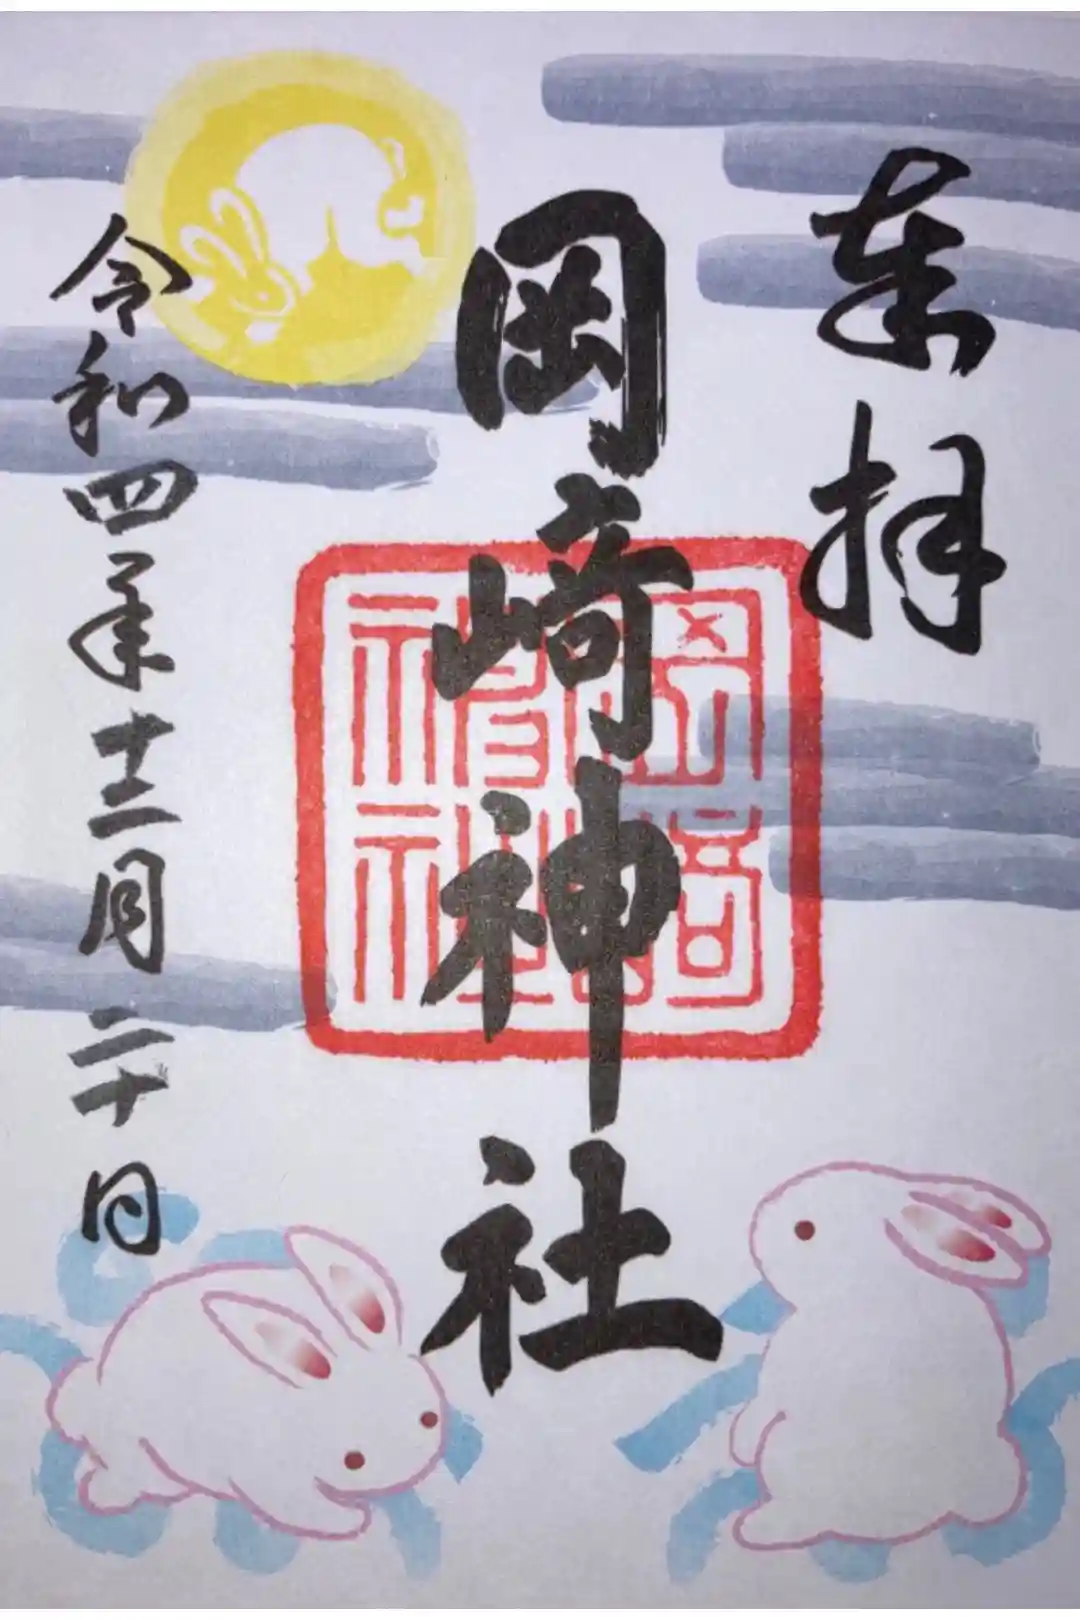 奉拝
岡崎神社
令和四年十二月二十日